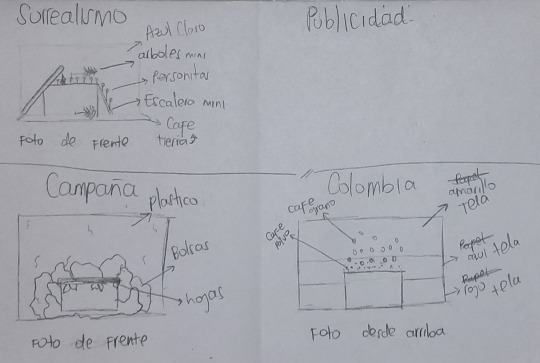 Surrealismo
Azul Claro
arboles mini
Personitas
Escalera mini
Cafe
tierra
Foto de Frente
Publicidad:
Campaña
plastico
Bolsas
hojas
Foto de Frente
Colombia
cafe grano
cafe polvo
Papel
amarillo
tela
Papel
azul tela
Papel
rojo tela
Foto desde arriba